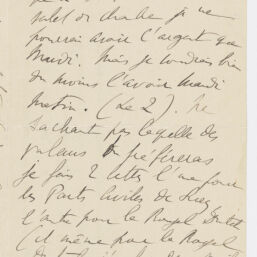 je ne
pourrai avoir l'argent que
Mardi. Mais je voudrais bien
du moins l'avoir mardi
matin. (Le 2). Ne
sachant pas laquelle des
tu préfèreras
je fais 2 lettres l'une pour
les Parts civiles de Suez
l'autre pour la Royal Dutch
(et même pour la Royal